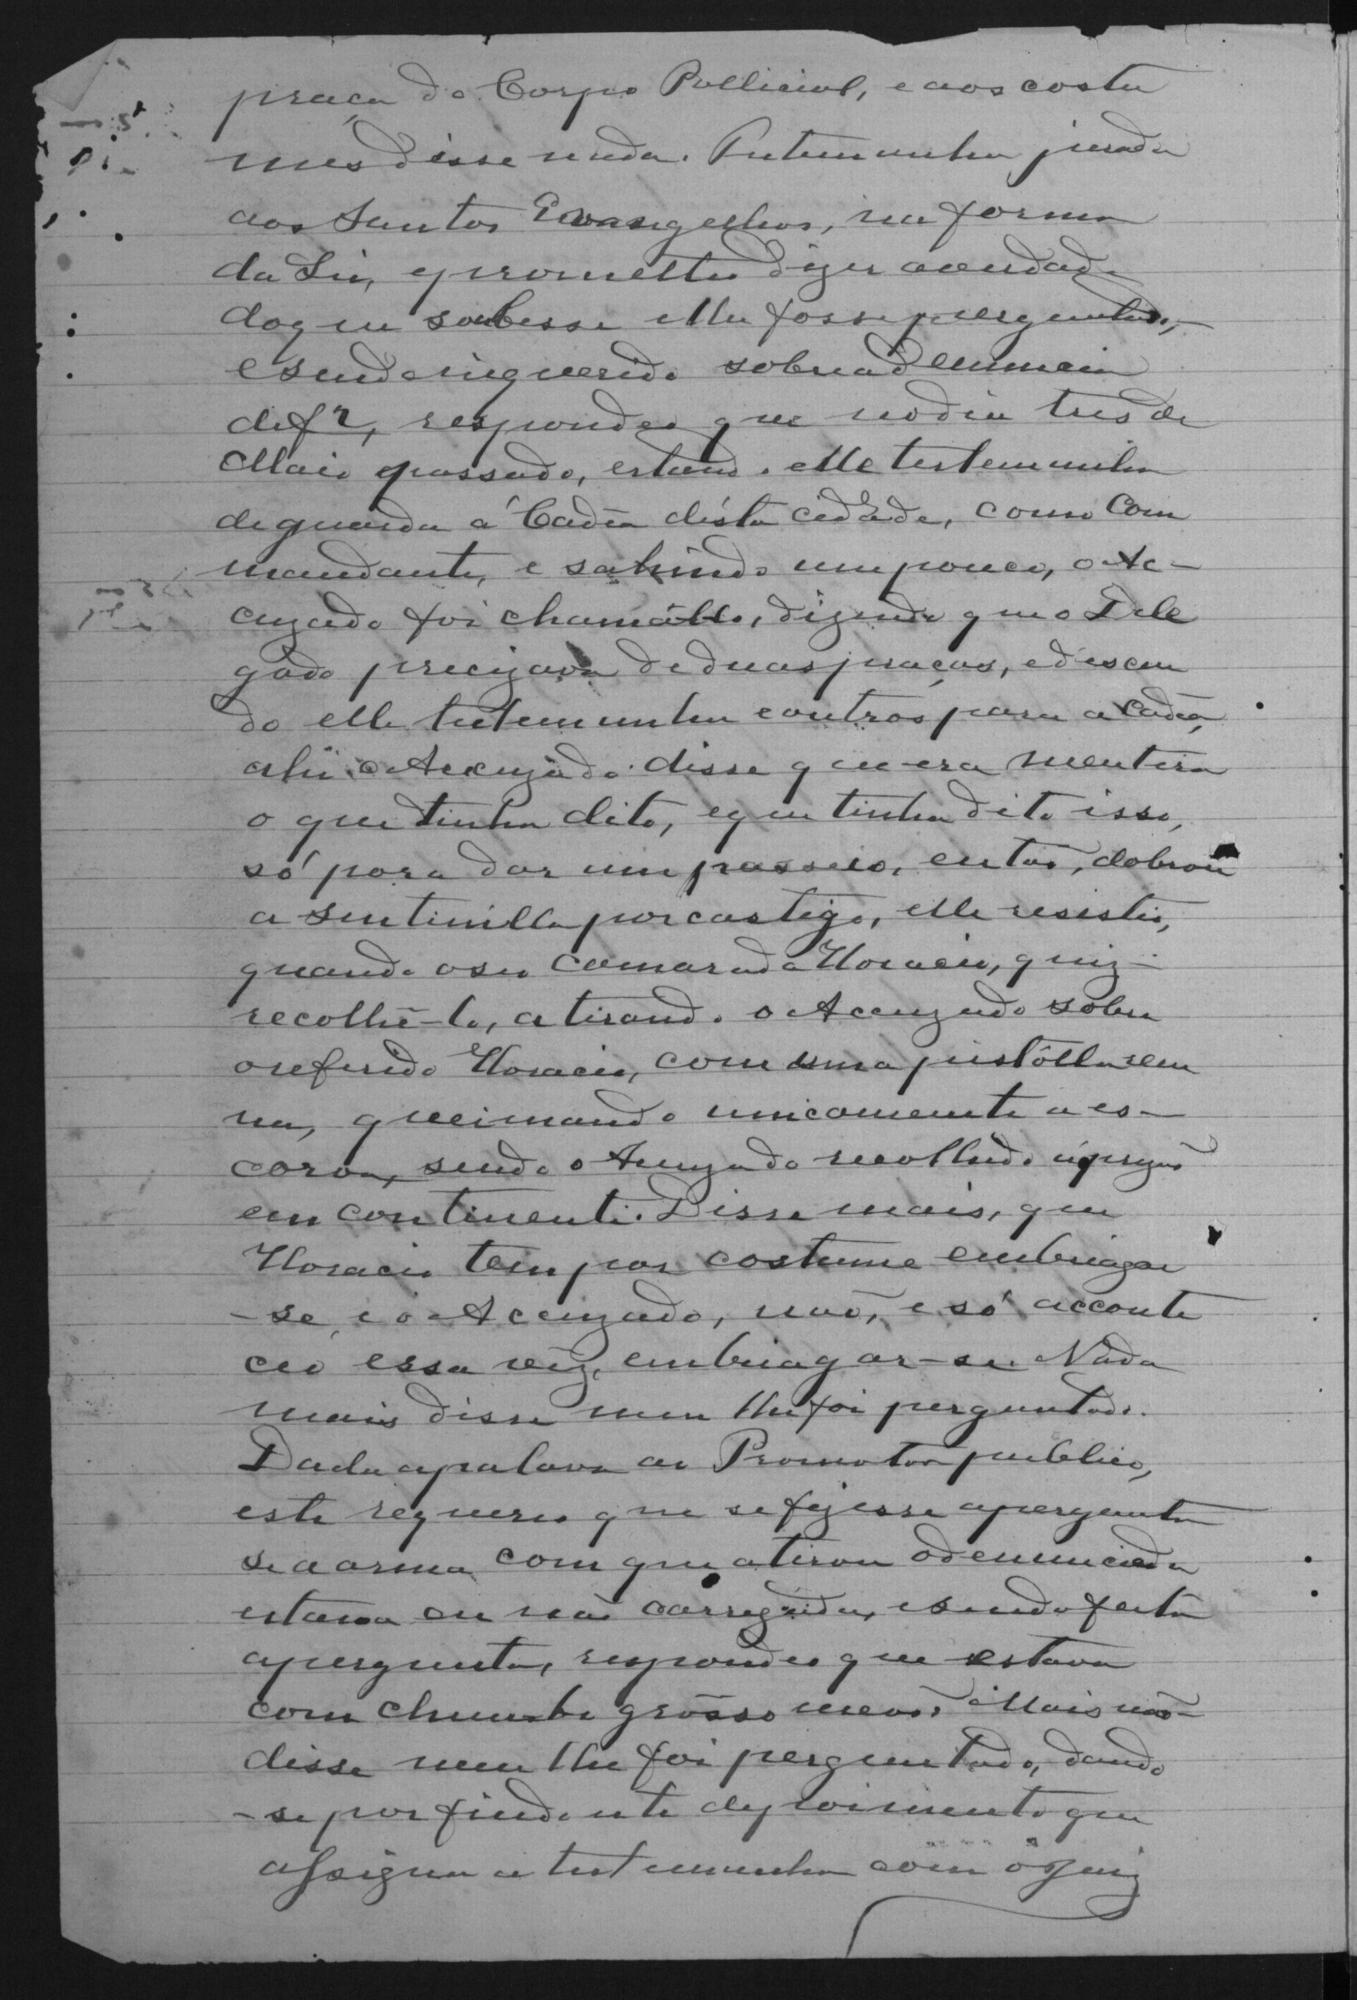 praça do Corpo Pollicial, e aos costu
mes disse nada. Tutemunha jurada
aos Santos Evangelhos, na forma
da Lei, e prometteu dizer a verdade
do que soubesse e lhe fosse perguntado,
e sendo inquerido sobre a denuncia
de f 2, respondeo que no dia tres de
Maio passado, estando elle testemunha
de guarda á Cadêa désta cidade, como Com
mandante, e sahindo um pouco, o Ac-
cuzado foi chamállo, dizendo que o Dele
gado precizava de duas praças, e descen
do elle testemunha e outros para a Cadêa,
ahi o Accuzado disse que era mentira
o que tinha dito, e que tinha dito isso,
só para dar um passeio, então, dobrou
a sentinella por castigo, elle resistio,
quando o seu camarada Horacio, quiz
recolhê-lo, atirando o Accuzado sobre
o referido Horacio, com uma pistólla
na, queimando unicamente a es-
corva, sendo o Accuzado recolhido á prizão
em continenti. Disse mais, que
Horacio tem por costume embriagar
-se, e o Accuzado, não, e só acconte
ceo essa vêz, embriagar-se. Nada
mais disse nem lhe foi perguntado.
Dada a palavra ao Promotor publico,
este requereo que se fizesse a pergunta
se a arma com que atirou o denunciado
estava ou não carregada, e sendo feita
a pergunta, respondeo que estava
com chumbo grôsso Mais não
disse nem lhe foi perguntado, dando
-se por findo este depoimento que
assigna a testemunha com o Juiz